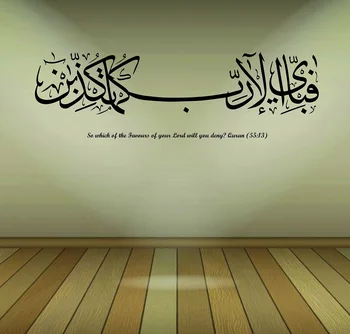 فبأي آلاء ربكما تكذبان
So which of the Favours of your Lord will you deny? Quran (55:13)